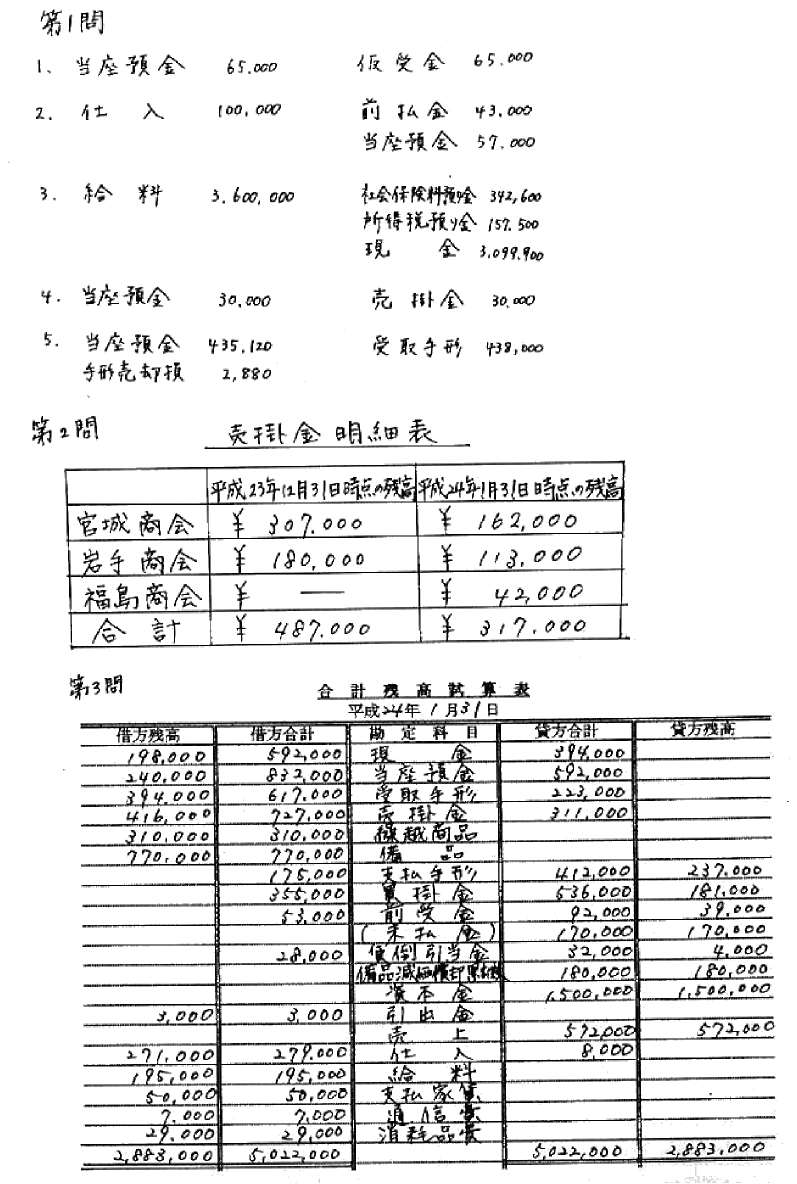 第1問
1. 当座預金 65.000 仮受金 65.000
2. 仕入 100,000 前払金 43.000
当座預金 57.000
3. 給料 3.600,000 社会保険料預り金 342,600
所得税預り金 157.500
現金 3,099,900
4. 当座預金 30,000 売掛金 30,000
5. 当座預金 435,120 受取手形 438,000
手形売却損 2,880
第2問 売掛金明細表
平成23年12月31日時点の残高 平成24年1月31日時点の残高
宮城商会 ¥ 307.000 ¥ 162,000
岩手商会 ¥ 180,000 ¥ 113,000
福島商会 ¥ — ¥ 42,000
合計 ¥ 487.000 ¥ 317.000
第3問 合計残高試算表
平成24年1月31日
借方残高 借方合計 勘定科目 貸方合計 貸方残高
198,000 592,000 現金 394,000
240,000 832,000 当座預金 592,000
394.000 617.000 受取手形 223,000
416,000 727,000 売掛金 311,000
310,000 310,000 繰越商品
770,000 770,000 備品
175,000 支払手形 412,000 237.000
355,000 買掛金 536,000 181,000
53,000 前受金 92,000 39,000
(未払金) 170,000 170,000
28,000 貸倒引当金 32,000 4,000
備品減価償却累計額 180,000 180,000
資本金 1,500,000 1,500,000
3,000 3,000 引出金
売上 572,000 572,000
271,000 279,000 仕入 8,000
195,000 195,000 給料
50,000 50,000 支払家賃
7.000 7,000 通信費
29.000 29,000 消耗品費
2,883,000 5,022,000 5,022,000 2,883,000